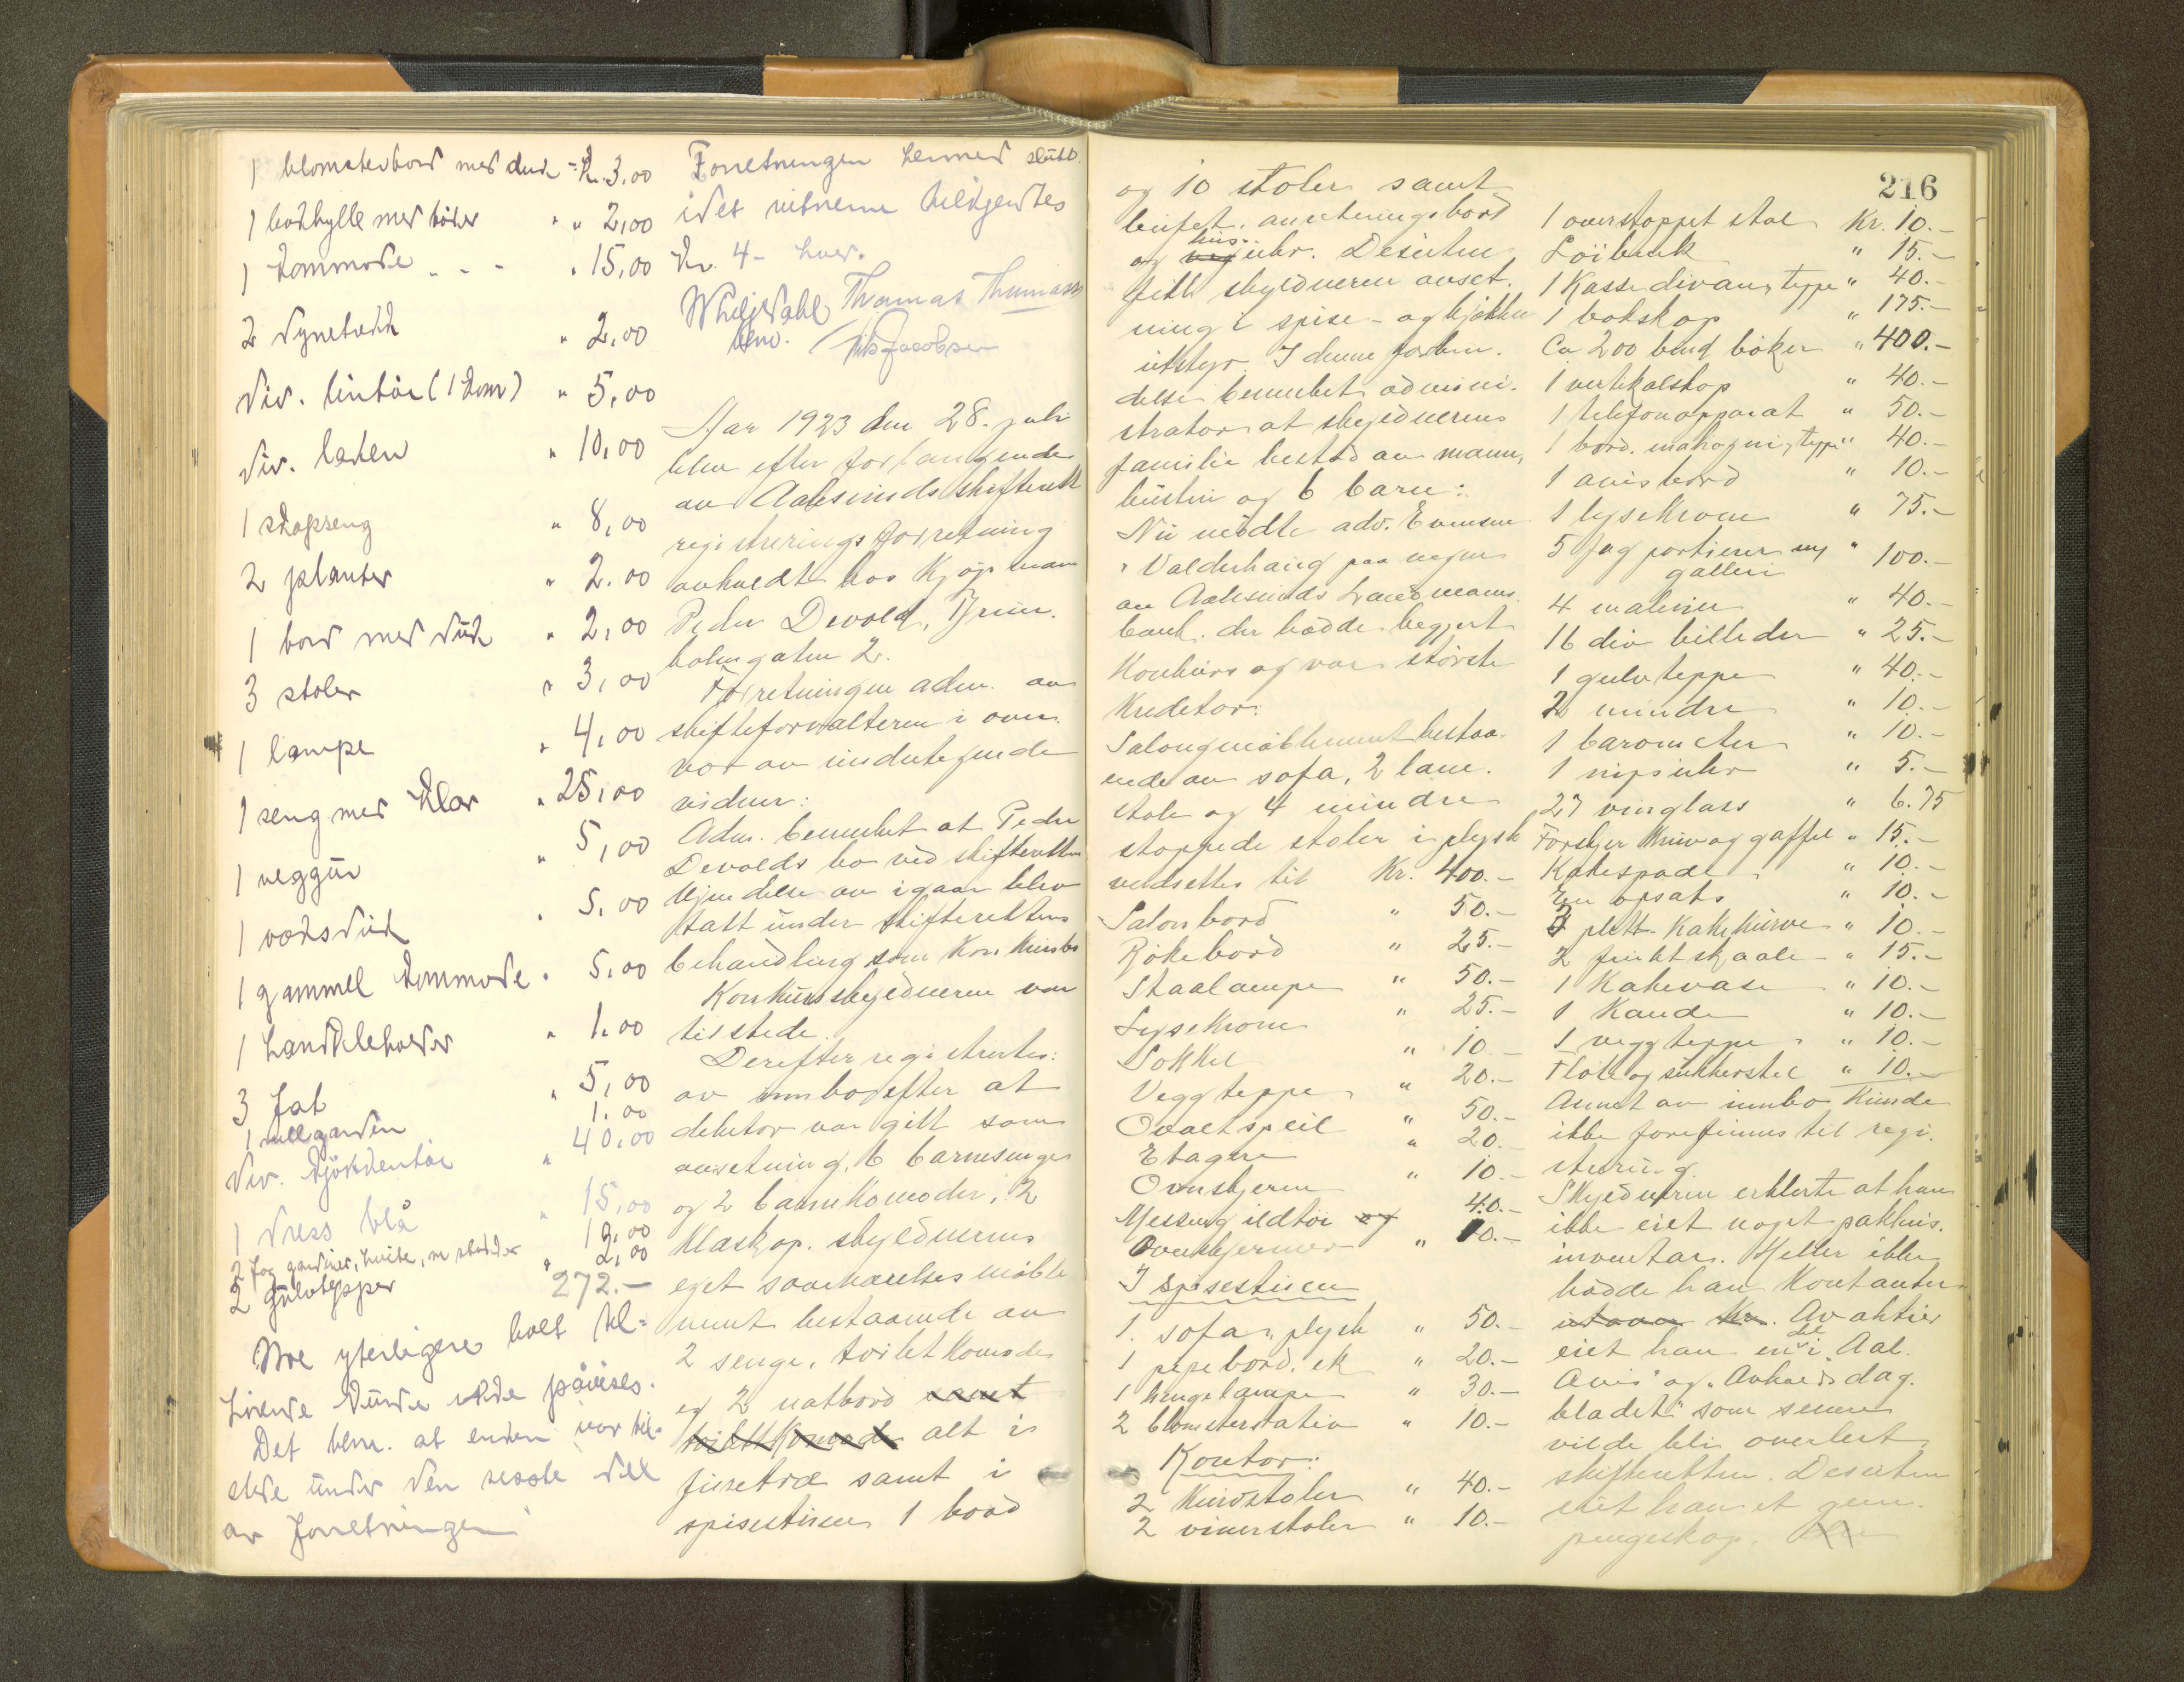 1 blomsterbord med duk - Kr. 3,00
1 bokhylle med bøker " " 2,00
1 kommode - - - " 15,00
2 dynetrekk " 2,00
div. lintøi (1 kom) " 5,00
div. laken " 10,00
1 skapseng " 8,00
2 planter " 2.00
1 bord med duk " 2,00
3 stoler " 3,00
1 lampe " 4,00
1 seng med klær " 25,00
1 veggur " 5,00
1 voksduk " 5,00
1 gammel kommode " 5,00
1 handkleholder " 1.00
3 fat " 5,00
1 rullgardin 1.00
div. kjøkkentøi " 40,00
1 dress blå " 15,00
2 fag gardiner, hvite, m
2 gulvtepper " 2,00
272.-
Noe yterligere boet til-
hørende kunde ikke påvises.
Det bem. at enken var til-
stede under den siste del
av forretningen
Forretningen hermed slutt.
idet vitnerne tilkjendtes
kr. 4- hver.
Thomas
Jacobsen
Aar 1923 den 28. juli
blev efter forlangende
av Aalesunds skifterett
registreringsforretning
avholdt hos Kjøpmann
Peder Devold,
holmgaten 2.
Forretningen adm. av
skifteforvalteren i over-
vær av undertegnede
vidner:
Adm. bemerket at Peder
Devolds bo ved skifterettens
kjendelse av igaar blev
tatt under skifterettens
behandling som konkursbo
Konkursskyldneren var
tilstede.
Derefter registrertes:
av innbo efter at
debitor var gitt som
avsetning. 6 barnesenger
og 2 barnekomoder, 2
klæskap. skyldnerens
eget soveværelsesmøble
ment bestaaende av
2 senge, toiletkomode
og 2 natbord samt
toilettkomode alt i
furetræ samt i
spisestuen 1 bord
216
og 10 stoler samt
buffet, anretningsbord
hus-
og veg uhr. Desuten
fikk skyldneren avset-
ning i spise- og kjøkken
utstyr. I denne forbin-
delse bemerket admini-
strator at skyldnerens
familie bestod av mann,
hustru og 6 barn:
Nu mødte adv. Evensen
Valderhaug paa vegne
av Aalesunds Landmans-
bank. der hadde begjært
Konkurs og var største
Kreditor:
Salongmøblement bestaa-
ende av sofa, 2 læne-
stole og 4 mindre
stoppede stoler i plysh
verdsettes til Kr. 400.-
Salonbord " 50.-
Røkebord " 25.-
Staalampe " 50.-
Lysekrone " 25.-
Sokkel " 10.-
Veggteppe " 20.-
Ovalt speil " 50.-
Etagere " 20.-
Ovnskjerm " 10.-
Messing ildtøi og 40.-
Ovnskjermer " 10.-
I spisestuen
1. sofa, plysh " 50.-
1 pipebord. ek " 20.-
1 hengelampe " 30.-
2 blomsterstativ " 10.-
Kontor:
2 Kurvstoler " 40.-
2 vinerstoler " 10.-
1 overstoppet stol Kr. 10.-
Løibenk " 15.-
1 Kassedivan, teppe " 40.-
1 bokskap " 175.-
Ca 200 bind bøker " 400.-
1 vertikalskap " 40.-
1 telefonapparat " 50.-
1 bord. mahogni, teppe " 40.-
1 avisbord " 10.-
1 lysekrone " 75.-
5 fag portierer m/ " 100.-
galleri
4 malerier " 40.-
16 div billeder " 25.-
1 gulvteppe " 40.-
2 mindre " 10.-
1 barometer " 10.-
1 nipsuhr " 5.-
27 vinglass " 6.75
Forskjærkniv og gaffel " 15.-
Kakespade " 10.-
En opsats " 10.-
2 plett- Kakekurve " 10.-
2 fruktskaale " 15.-
1 Kakevase " 10.-
1 Kande " 10.-
1 veggteppe " 10.-
Fløte og sukkerstel " 10.-
Annet av innbo kunde
ikke forefinnes til regi-
strering.
Skyldneren erklærte at han
ikke eiet noget pakhus-
inventar. Heller ikke
hadde han Kontanter
utover Kr. Av aktier
del
eiet han en i "Aal.
Avis" og "Avholdsdag-
bladet" som senere
vilde bli overlevert
skifteretten. Desuten
eiet han et gem.
pengeskap.